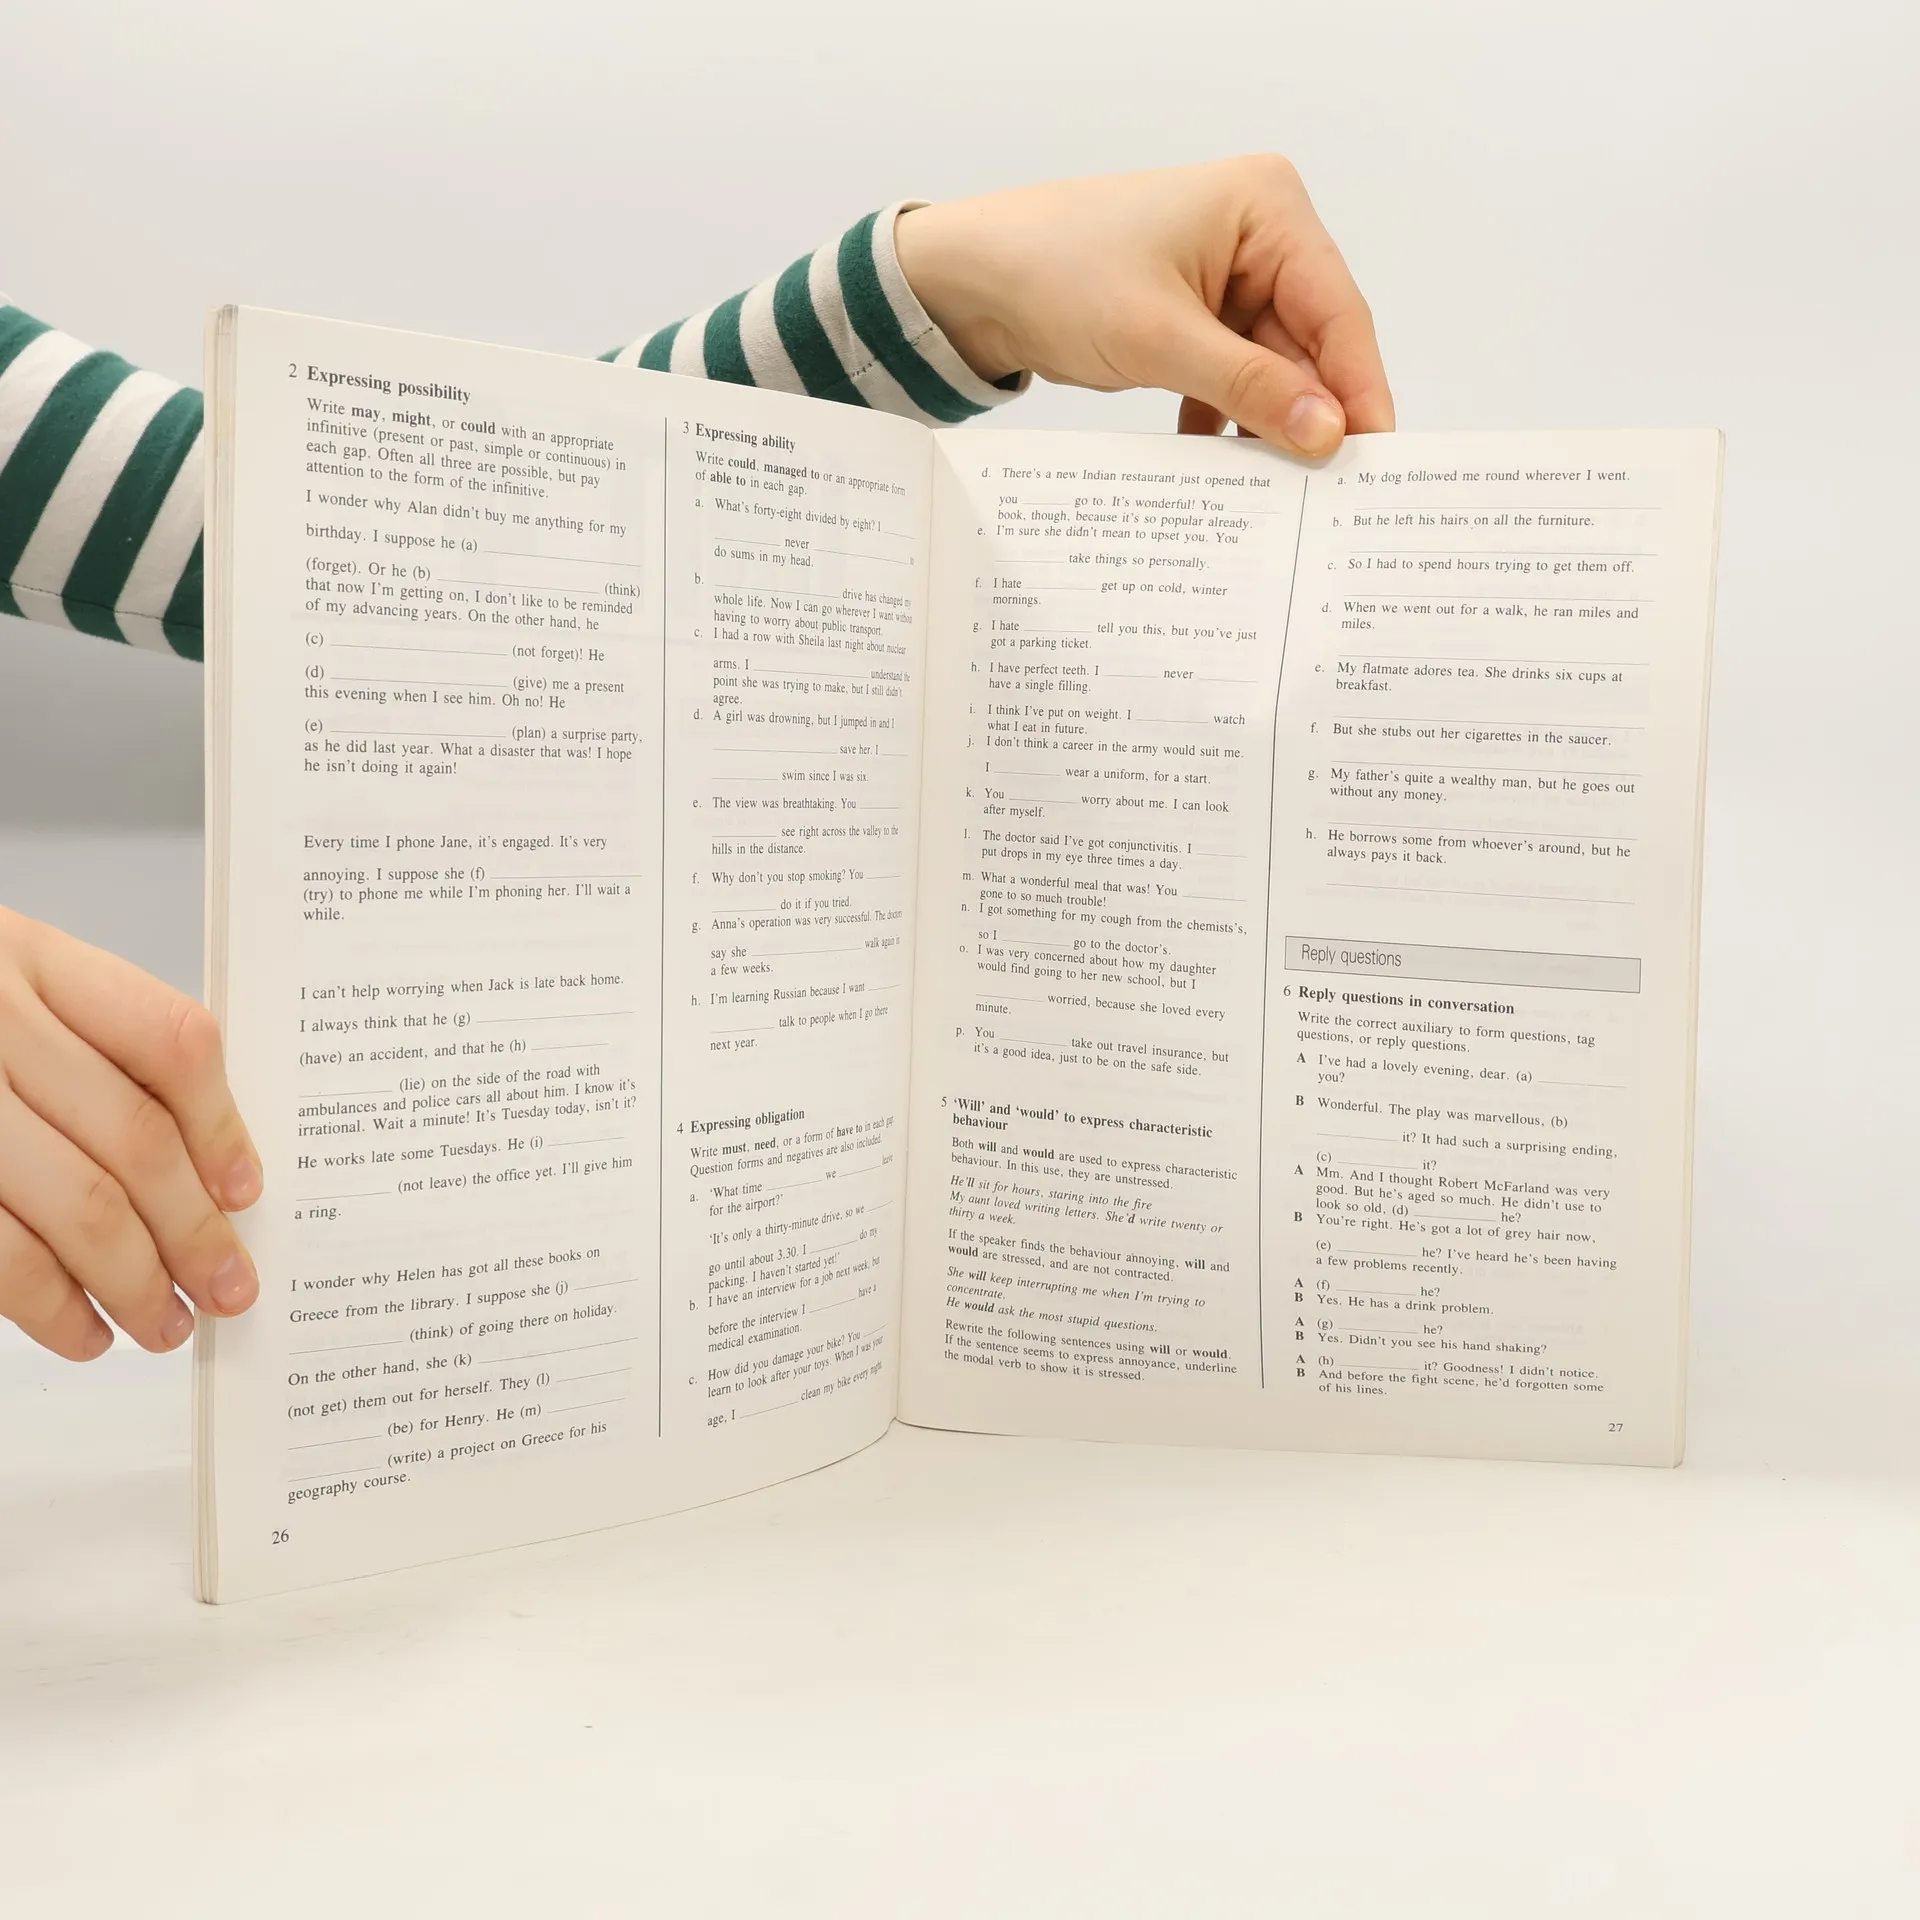 2 Expressing possibility
Write may, might, or could with an appropriate
infinitive (present or past, simple or continuous) in
each gap. Often all three are possible, but pay
attention to the form of the infinitive.
I wonder why Alan didn't buy me anything for my
birthday. I suppose he (a)
(forget). Or he (b) (think)
that now I'm getting on, I don't like to be reminded
of my advancing years. On the other hand, he
(c) (not forget)! He
(d) (give) me a present
this evening when I see him. Oh no! He
(e) (plan) a surprise party,
as he did last year. What a disaster that was! I hope
he isn't doing it again!
Every time I phone Jane, it's engaged. It's very
annoying. I suppose she (f)
(try) to phone me while I'm phoning her. I'll wait a
while.
I can't help worrying when Jack is late back home.
I always think that he (g)
(have) an accident, and that he (h)
(lie) on the side of the road with
ambulances and police cars all about him. I know it's
irrational. Wait a minute! It's Tuesday today, isn't it?
He works late some Tuesdays. He (i)
(not leave) the office yet. I'll give him
a ring.
I wonder why Helen has got all these books on
Greece from the library. I suppose she (j)
(think) of going there on holiday.
On the other hand, she (k)
(not get) them out for herself. They (l)
(be) for Henry. He (m)
(write) a project on Greece for his
geography course.
26
3 Expressing ability
Write could, managed to or an appropriate form
of able to in each gap.
a. What's forty-eight divided by eight? I
never
do sums in my head.
b. drive has changed my
whole life. Now I can go wherever I want without
having to worry about public transport.
c. I had a row with Sheila last night about nuclear
arms. I understand the
point she was trying to make, but I still didn't
agree.
d. A girl was drowning, but I jumped in and I
save her. I
swim since I was six.
e. The view was breathtaking. You
see right across the valley to the
hills in the distance.
f. Why don't you stop smoking? You
do it if you tried.
g. Anna's operation was very successful. The doctors
say she walk again in
a few weeks.
h. I'm learning Russian because I want
talk to people when I go there
next year.
4 Expressing obligation
Write must, need, or a form of have to in each gap.
Question forms and negatives are also included.
a. 'What time we leave
for the airport?'
'It's only a thirty-minute drive, so we
go until about 3.30. I do my
packing. I haven't started yet!'
b. I have an interview for a job next week, but
before the interview I have a
medical examination.
c. How did you damage your bike? You
learn to look after your toys. When I was your
age, I clean my bike every night.
d. There's a new Indian restaurant just opened that
you go to. It's wonderful! You
book, though, because it's so popular already.
e. I'm sure she didn't mean to upset you. You
take things so personally.
f. I hate get up on cold, winter
mornings.
g. I hate tell you this, but you've just
got a parking ticket.
h. I have perfect teeth. I never
have a single filling.
i. I think I've put on weight. I watch
what I eat in future.
j. I don't think a career in the army would suit me.
I wear a uniform, for a start.
k. You worry about me. I can look
after myself.
l. The doctor said I've got conjunctivitis. I
put drops in my eye three times a day.
m. What a wonderful meal that was! You
gone to so much trouble!
n. I got something for my cough from the chemists's,
so I go to the doctor's.
o. I was very concerned about how my daughter
would find going to her new school, but I
worried, because she loved every
minute.
p. You take out travel insurance, but
it's a good idea, just to be on the safe side.
5 'Will' and 'would' to express characteristic
behaviour
Both will and would are used to express characteristic
behaviour. In this use, they are unstressed.
He'll sit for hours, staring into the fire
My aunt loved writing letters. She'd write twenty or
thirty a week.
If the speaker finds the behaviour annoying, will and
would are stressed, and are not contracted.
She will keep interrupting me when I'm trying to
concentrate.
He would ask the most stupid questions.
Rewrite the following sentences using will or would.
If the sentence seems to express annoyance, underline
the modal verb to show it is stressed.
a. My dog followed me round wherever I went.
b. But he left his hairs on all the furniture.
c. So I had to spend hours trying to get them off.
d. When we went out for a walk, he ran miles and
miles.
e. My flatmate adores tea. She drinks six cups at
breakfast.
f. But she stubs out her cigarettes in the saucer.
g. My father's quite a wealthy man, but he goes out
without any money.
h. He borrows some from whoever's around, but he
always pays it back.
Reply questions
6 Reply questions in conversation
Write the correct auxiliary to form questions, tag
questions, or reply questions.
A I've had a lovely evening, dear. (a)
you?
B Wonderful. The play was marvellous, (b)
it? It had such a surprising ending,
(c) it?
A Mm. And I thought Robert McFarland was very
good. But he's aged so much. He didn't use to
look so old, (d) he?
B You're right. He's got a lot of grey hair now,
(e) he? I've heard he's been having
a few problems recently.
A (f) he?
B Yes. He has a drink problem.
A (g) he?
B Yes. Didn't you see his hand shaking?
A (h) it? Goodness! I didn't notice.
B And before the fight scene, he'd forgotten some
of his lines.
27